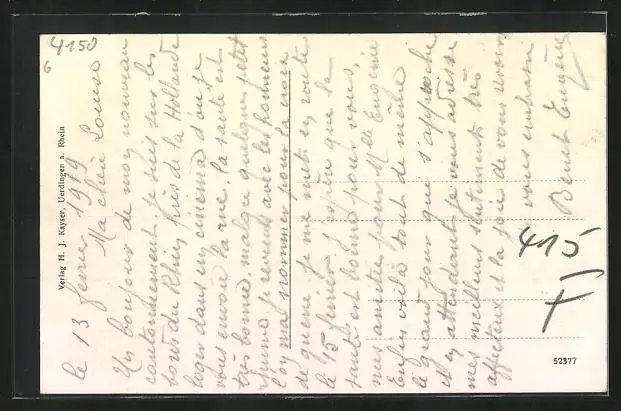 4150
6
Verlag H. J. Kayser, Uerdingen a. Rhein
le 13 fevrier 1919
Ma chère Louise
Un bonjour de mon nouveau
cantonnement, je suis sur les
bords du Rhin, près de la Hollande
loger dans un cinéma d'où je
vous envoie la rue, la santé est
très bonne, malgré quelques petit
rhume, remede avec les honneurs
l'on m'a nommer pour la croix
de guerre, je me met en route
le 15 fevrier, j'espère que la
santé est bonne pour vous,
mes amitiés pour Mlle Eugénie
Enfin voilà tout de même
le grand jour que s'approche
et en attendant je vous adresse
mes meilleurs sentiments très
affectueux et la joie de vous revoir
vous embrasse
Benoit Eugène
415
52377